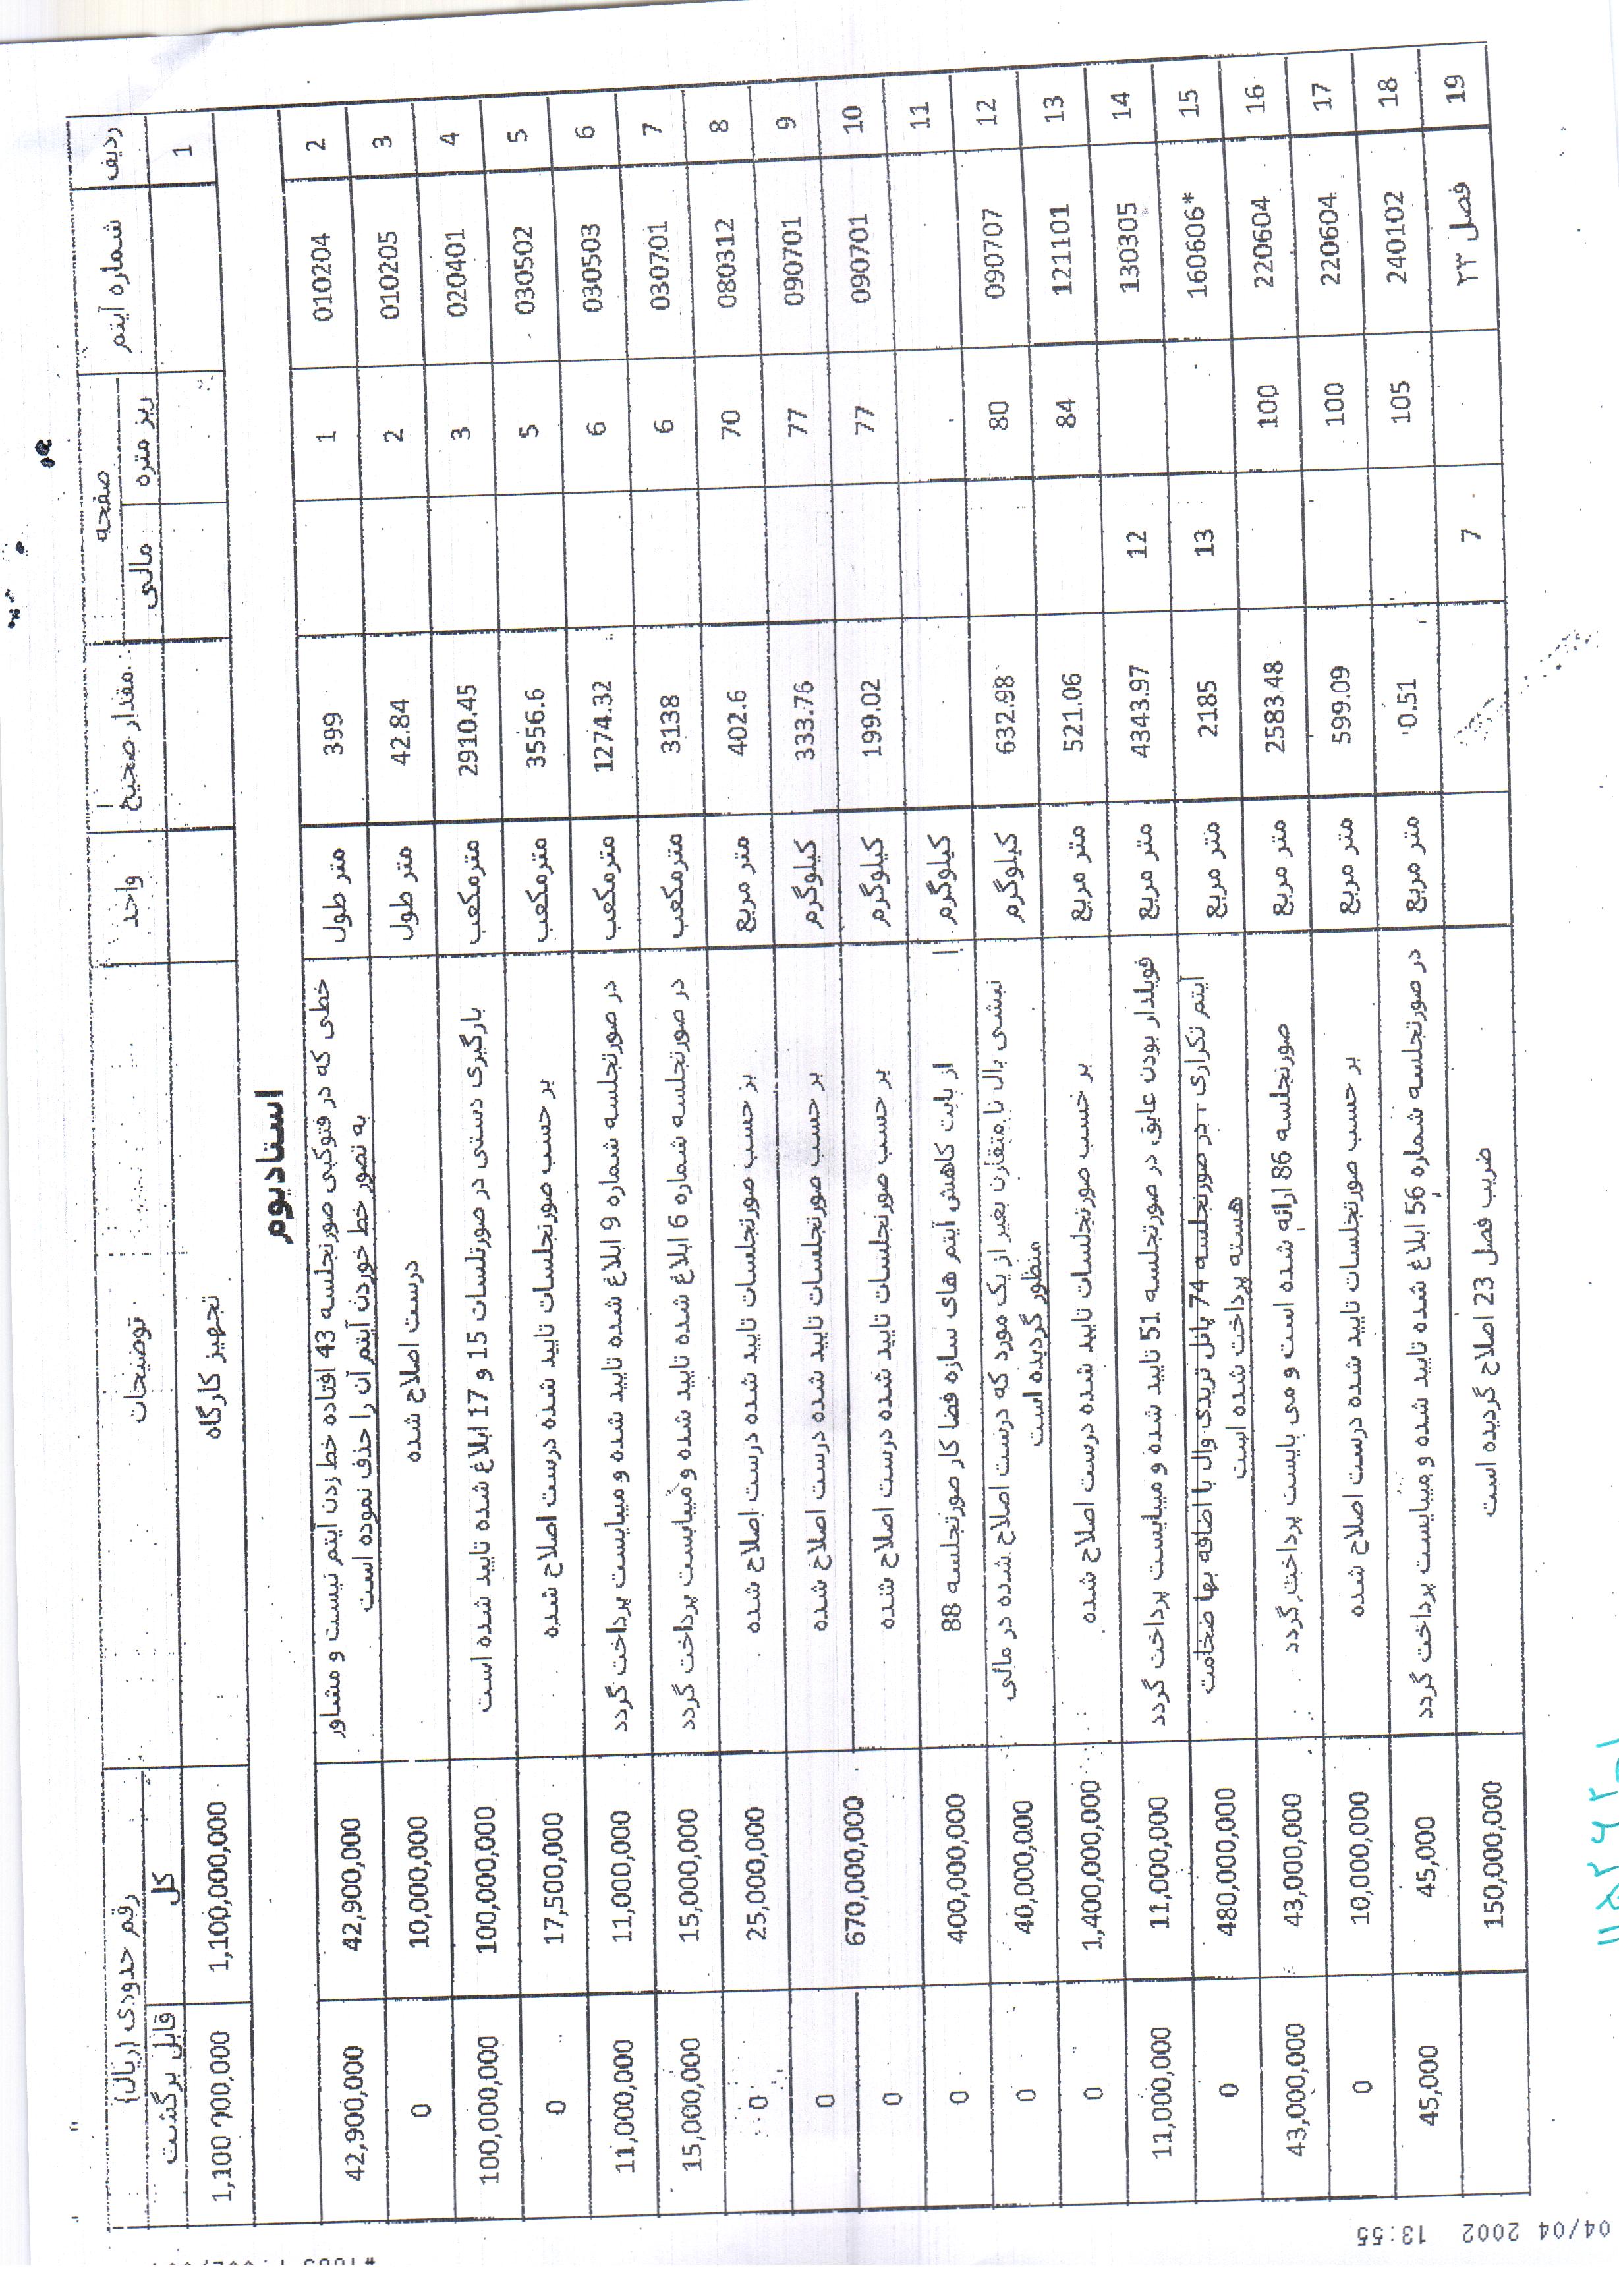 ردیف شماره آیتم صفحه مقدار صحیح واحد توضیحات رقم حدودی (ریال)
ریز متره مالی کل قابل برگشت
1 تجهیز کارگاه 1,100,000,000 1,100,000,000
استادیوم
2 010204 1 399 متر طول خطی که در فتوکپی صورتجلسه 43 افتاده خط زدن آیتم نیست و مشاور 42,900,000 42,900,000
به تصور خط خوردن آیتم آن را حذف نموده است
3 010205 2 42.84 متر طول درست اصلاح شده 10,000,000 0
4 020401 3 2910.45 مترمکعب بارگیری دستی در صورتلسات 15 و 17 ابلاغ شده تایید شده است 100,000,000 100,000,000
5 030502 5 3556.6 مترمکعب بر حسب صورتجلسات تایید شده درست اصلاح شده 17,500,000 0
6 030503 6 1274.32 مترمکعب در صورتجلسه شماره 9 ابلاغ شده تایید شده و میبایست پرداخت گردد 11,000,000 11,000,000
7 030701 6 3138 مترمکعب در صورتجلسه شماره 6 ابلاغ شده تایید شده و میبایست پرداخت گردد 15,000,000 15,000,000
8 080312 70 402.6 متر مربع بر حسب صورتجلسات تایید شده درست اصلاح شده 25,000,000 0
9 090701 77 333.76 کیلوگرم بر حسب صورتجلسات تایید شده درست اصلاح شده 670,000,000 0
10 090701 77 199.02 کیلوگرم بر حسب صورتجلسات تایید شده درست اصلاح شده 0
11 کیلوگرم از بابت کاهش آیتم های سازه فضا کار صورتجلسه 88 400,000,000 0
12 090707 80 632.98 کیلوگرم نبشی بال نا متقارن بغیر از یک مورد که درست اصلاح شده در مالی 40,000,000 0
منظور گردیده است
13 121101 84 521.06 متر مربع بر حسب صورتجلسات تایید شده درست اصلاح شده 1,400,000,000 0
14 130305 12 4343.97 متر مربع فویلدار بودن عایق در صورتجلسه 51 تایید شده و میبایست پرداخت گردد 11,000,000 11,000,000
15 160606* 13 2185 متر مربع آیتم تکراری - در صورتجلسه 74 پانل تریدی وال با اضافه بها ضخامت 480,000,000 0
هسته پرداخت شده است
16 220604 100 2583.48 متر مربع صورتجلسه 86 ارائه شده است و می بایست پرداخت گردد 43,000,000 43,000,000
17 220604 100 599.09 متر مربع بر حسب صورتجلسات تایید شده درست اصلاح شده 10,000,000 0
18 240102 105 0.51 متر مربع در صورتجلسه شماره 56 ابلاغ شده تایید شده و میبایست پرداخت گردد 45,000 45,000
19 فصل ۲۳ 7 ضریب فصل 23 اصلاح گردیده است 150,000,000
04/04 2002 13:55